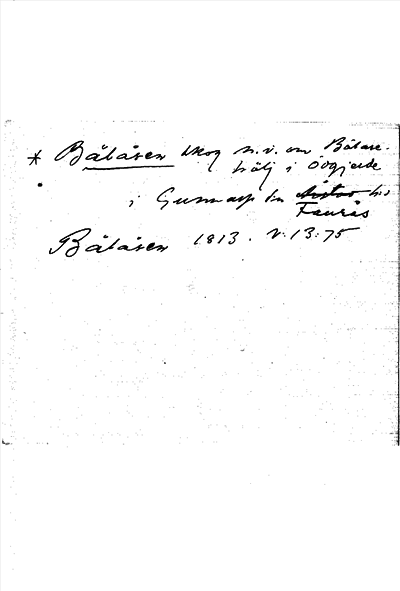 * Bålåsen skog n.v. om Bålase-
hölj i Ödgjerde
i Gunnarp sn hs
Faurås
Bålåsen 1813. V:13:75